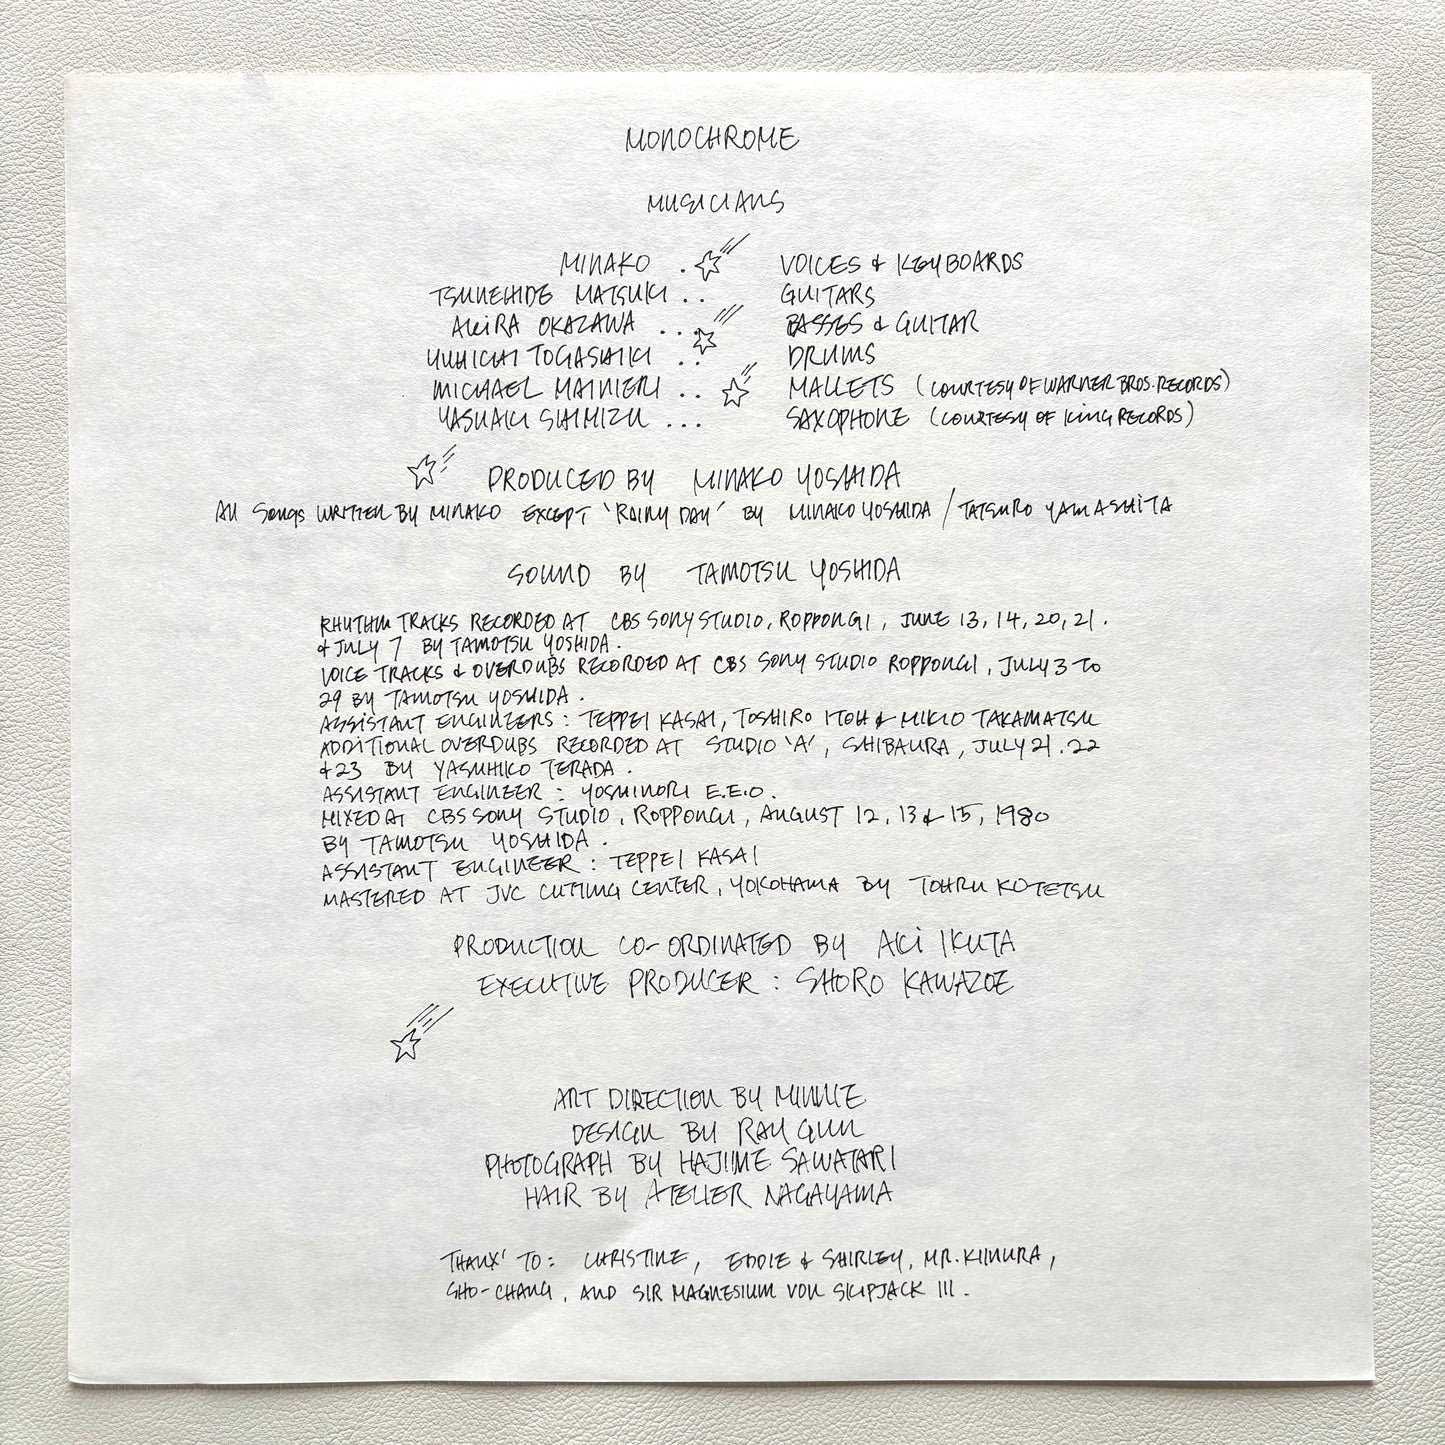 MONOCHROME
MUSICIANS
MINAKO . VOICES & KEYBOARDS
TSUNEHIDE MATSUKI .. GUITARS
AKiRA OKAZAWA ... BASSES & GUITAR
YUHICHI TOGASHIKI .. DRUMS
MICHAEL MAINIERI .. MALLETS (COURTESY OF WARNER BROS. RECORDS)
YASUAKI SHIMIZU ... SAXOPHONE (COURTESY OF KiNG RECORDS)
PRODUCED BY MINAKO YOSHIDA
All Songs WRITTEN BY MINAKO EXCEPT 'RAINY DAY' BY MINAKO YOSHIDA / TATSURO YAMASHITA
SOUND BY TAMOTSU YOSHIDA
RHYTHM TRACKS RECORDED AT CBS SONY STUDIO, ROPPONGI, JUNE 13, 14, 20, 21.
& JULY 7 BY TAMOTSU YOSHIDA.
VOICE TRACKS & OVERDUBS RECORDED AT CBS SONY STUDIO ROPPONGI, JULY 3 TO
29 BY TAMOTSU YOSHIDA.
ASSISTANT ENGINEERS : TEPPEI KASAI, TOSHIRO ITOH & MIKIO TAKAMATSU
ADDITIONAL OVERDUBS RECORDED AT STUDIO 'A', SHIBAURA, JULY 21. 22
& 23 BY YASUHIKO TERADA.
ASSISTANT ENGINEER : YOSHINORI E.E.O.
MIXED AT CBS SONY STUDIO, ROPPONGI, AUGUST 12, 13 & 15, 1980
BY TAMOTSU YOSHIDA.
ASSISTANT ENGINEER : TEPPEI KASAI
MASTERED AT JVC CUTTING CENTER, YOKOHAMA BY TOHRU KOTETSU
PRODUCTION CO-ORDINATED BY AKi IKUTA
EXECUTIVE PRODUCER : SHORO KAWAZOE
ART DIRECTION BY MINNIE
DESIGN BY RAY GUN
PHOTOGRAPH BY HAJIME SAWATARI
HAIR BY ATELIER NAGAYAMA
THANX' TO : CHRISTINE, EDDIE & SHIRLEY, MR. KIMURA,
SHO-CHANG, AND SIR MAGNESIUM VON SKIPJACK III.